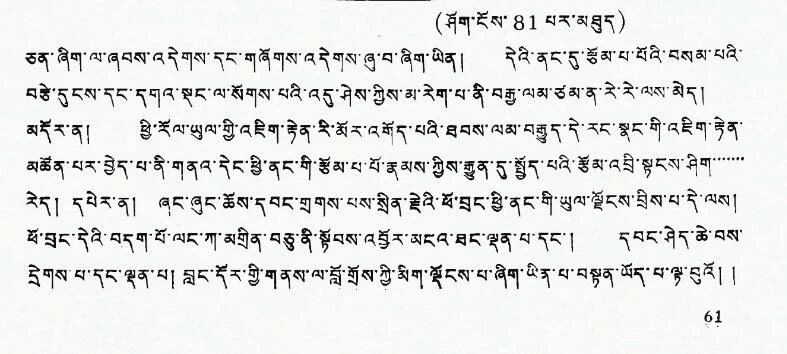 (ཤོག་ངོས་ 81 པར་མཐུད)
ཅན་ཞིག་ལ་ཞབས་འདེགས་དང་གཞོགས་འདེགས་ཞུ་བ་ཞིག་ཡིན། དེའི་ནང་དུ་རྩོམ་པ་པོའི་བསམ་པའི་
བརྩེ་དུངས་དང་དགའ་སྡང་ལ་སོགས་པའི་འདུ་ཤེས་ཀྱིས་མ་རེག་པ་ནི་བརྒྱ་ལམ་ཙམ་ན་རེ་རེ་ལས་མེད།
མདོར་ན། ཕྱི་རོལ་ཡུལ་གྱི་འཇིག་རྟེན་རི་མོར་འགོད་པའི་ཐབས་ལམ་བརྒྱུད་དེ་རང་སྣང་གི་འཇིག་རྟེན་
མཚོན་པར་བྱེད་པ་ནི་གནའ་དེང་ཕྱི་ནང་གི་རྩོམ་པ་པོ་རྣམས་ཀྱིས་རྒྱུན་དུ་སྤྱོད་པའི་རྩོམ་འབྲི་སྟངས་ཤིག་......
རེད། དཔེར་ན། ཞང་ཞུང་ཆོས་དབང་གྲགས་པས་སྲིན་རྗེའི་ཕོ་བྲང་ཕྱི་ནང་གི་ཡུལ་ལྗོངས་བྲིས་པ་དེ་ལས།
ཕོ་བྲང་དེའི་བདག་པོ་ལང་ཀ་མགྲིན་བཅུ་ནི་སྟོབས་འབྱོར་མངའ་ཐང་ལྡན་པ་དང་། དབང་ཤེད་ཆེ་བས་
དྲེགས་པ་དང་ལྡན་པ། བླང་དོར་གྱི་གནས་ལ་བློ་གྲོས་ཀྱི་མིག་ལྡོངས་པ་ཞིག་ཡིན་པ་བསྟན་ཡོད་པ་ལྟ་བུའོ། །
61